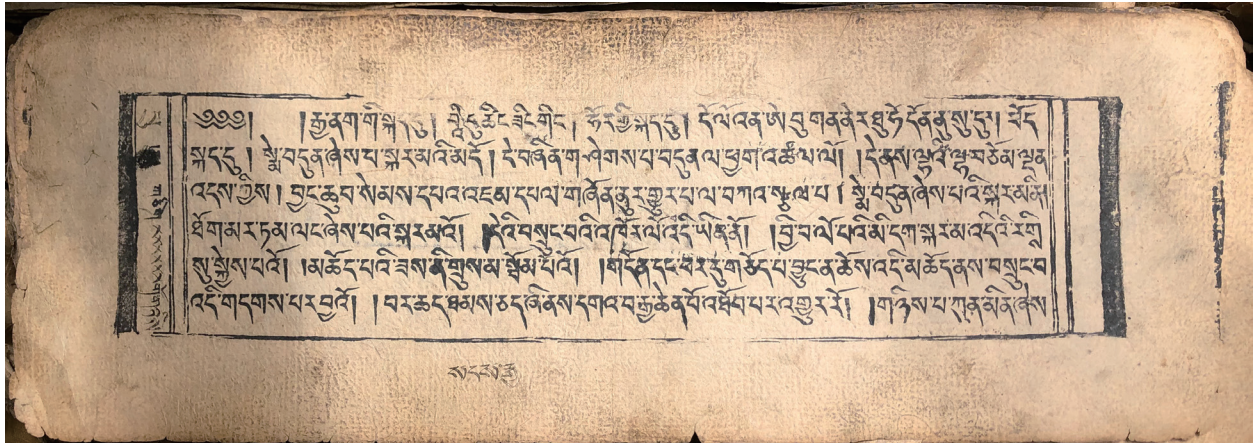 ༄༅༅། །རྒྱ་ནག་གི་སྐད་དུ། བྷཱི་དུ་ཚིང་ཟིང་གིང་། ཧོར་གྱི་སྐད་དུ། དོ་ལོ་འན་ཨེ་བུ་གན་ནེ་ར་ཐུ་ཧེ་དོན་ནུ་སུ་དུར། བོད་
སྐད་དུ། སྨེ་བདུན་ཞེས་པ་སྐར་མའི་མདོ། དེ་བཞིན་གཤེགས་པ་བདུན་ལ་ཕྱག་འཚལ་ལོ། །དེ་ནས་ལྷའི་ལྷ་བཅོམ་ལྡན་
འདས་ཀྱིས། བྱང་ཆུབ་སེམས་དཔའ་འཇམ་དཔལ་གཞོན་ནུར་གྱུར་པ་ལ་བཀའ་སྩལ་པ། སྨེ་བདུན་ཞེས་པའི་སྐར་མ་ནི།
ཐོག་མར་ཏམ་ལང་ཞེས་པའི་སྐར་མའོ། །དེའི་བསྲུང་བའི་འཁོར་ལོ་འདི་ཡིན་ནོ། །བྱི་བ་ལོ་པའི་མི་དག་སྐར་མ་འདིའི་རིགྶ་
སུ་སྐྱེས་པའོ། །མཆོད་པའི་ཟས་ནི་གྲུས་མ་སྦོམ་པོའོ། །གདོན་དང་ཕར་དུག་ཅོད་པ་བྱུང་ན་ཆོས་འདི་མཆོད་ནས་བསྲུང་བ་
འདི་གདགས་པར་བྱའོ། །བར་ཆད་ཐམས་ཅད་ཞི་ནས་དགའ་བ་རྒྱ་ཆེན་པོ་འཐོབ་པར་འགྱུར་རོ། །གཉིས་པ་ཀུན་མིན་ཞེས་